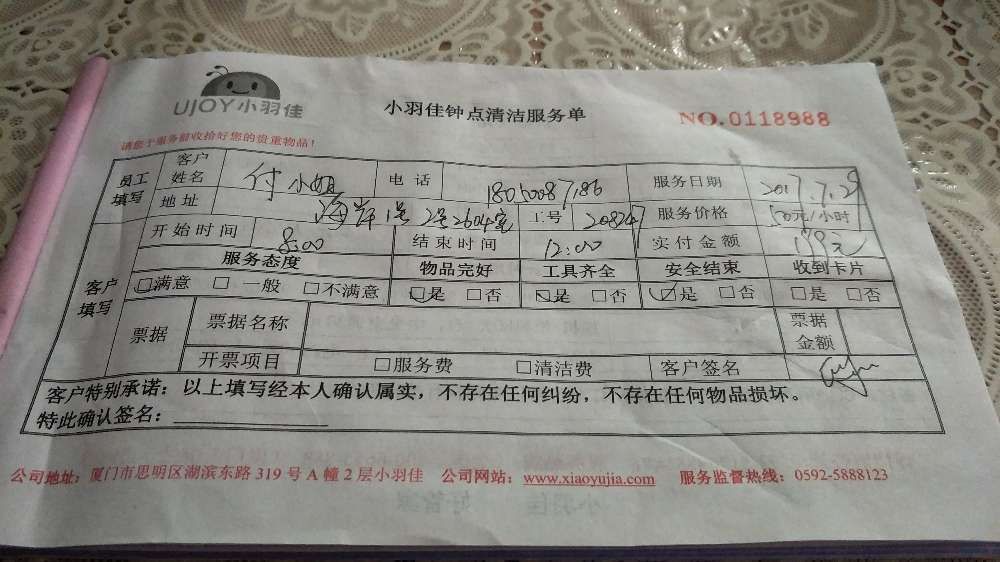 UJOY小羽佳
小羽佳钟点清洁服务单
NO.0118988
请您于服务前收拾好您的贵重物品！
员工填写 客户姓名 付小姐 电话 服务日期 2017.7.29
地址 海岸1号2号2604室 工号 208247 服务价格 50元/小时
客户填写 开始时间 8:00 结束时间 12:00 实付金额
服务态度 物品完好 工具齐全 安全结束 收到卡片
□满意 □一般 □不满意 ☑是 □否 ☑是 □否 ☑是 □否 □是 □否
票据 票据名称 票据金额
开票项目 □服务费 □清洁费 客户签名
客户特别承诺：以上填写经本人确认属实，不存在任何纠纷，不存在任何物品损坏。
特此确认签名：
公司地址：厦门市思明区湖滨东路319号A幢2层小羽佳 公司网站：www.xiaoyujia.com 服务监督热线：0592-5888123